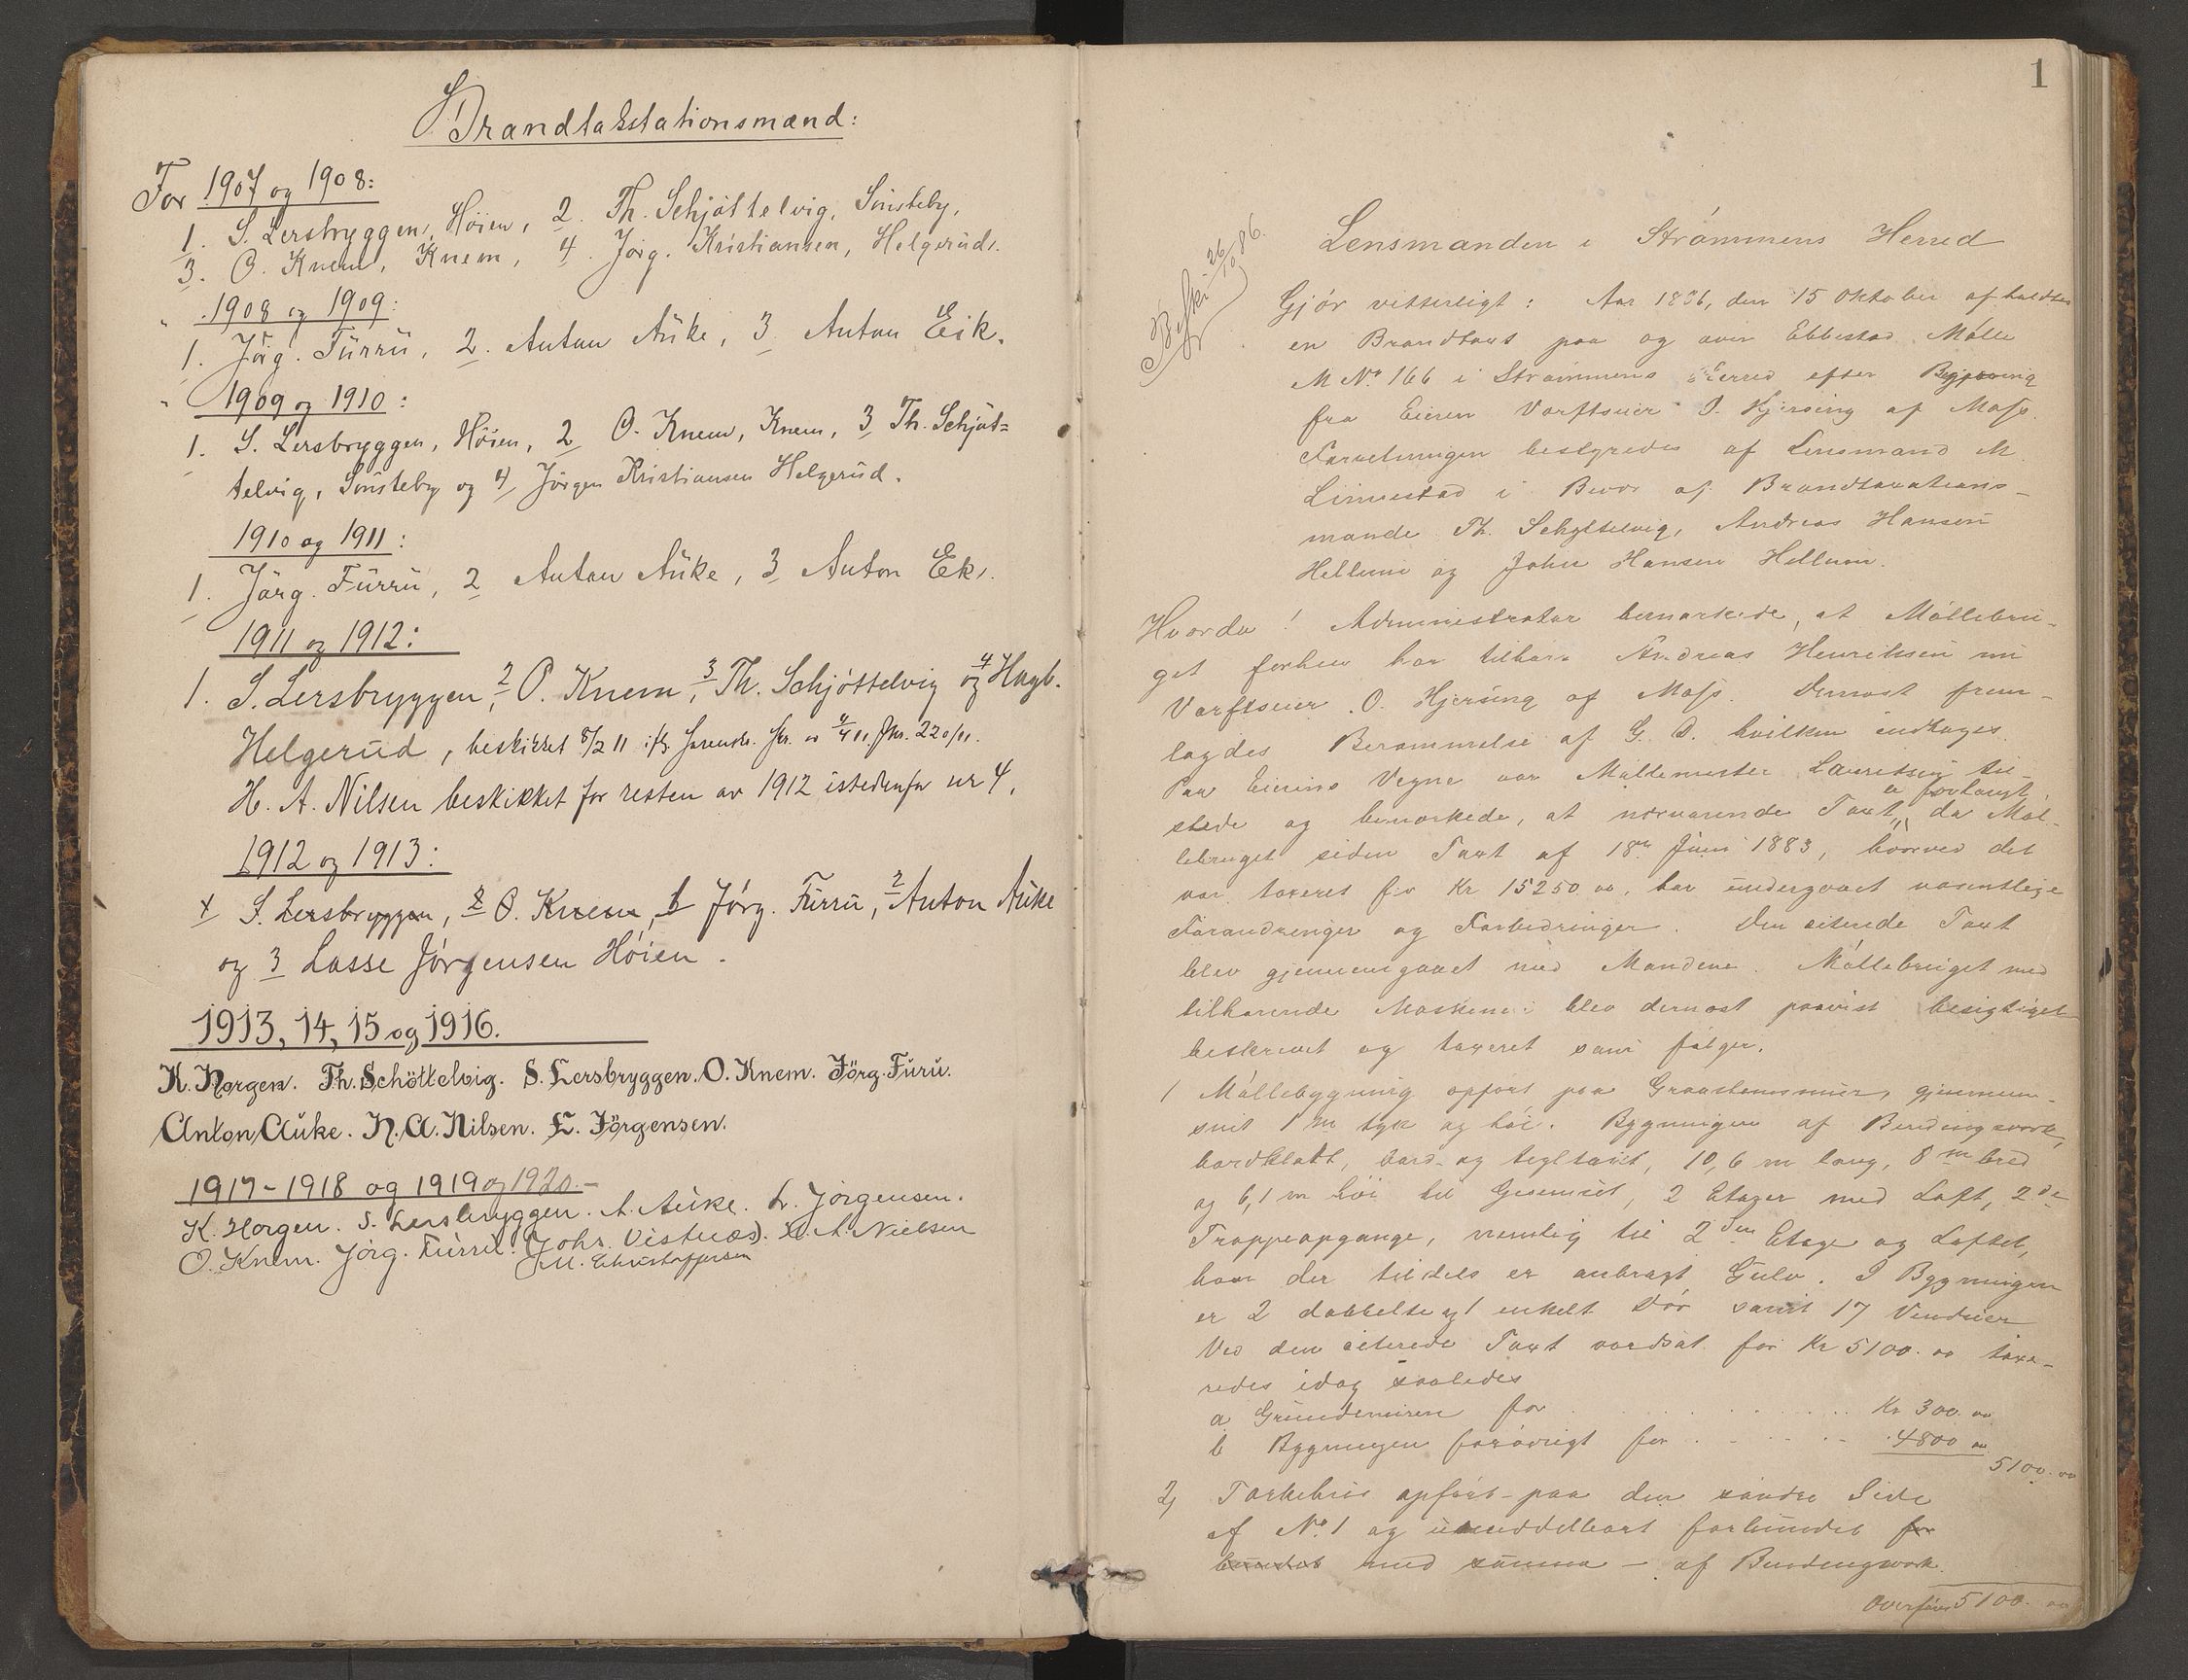 Brandtakstationsmænd:
For 1907 og 1908:
1. S. Lersbryggen, Höien, 2. Th. Schjöttelvig, Sönsteby,
3. O. Knem, Knem, 4. Jörg. Kristiansen, Helgerud.
" 1908 og 1909:
1. Jörg. Furru, 2. Anton Auke, 3 Anton Eik.
" 1909 og 1910:
1. S. Lersbryggen, Höien, 2 O. Knem, Knem, 3 Th. Schjöt=
telvig, Sönsteby og 4, Jörgen Kristiansen Helgerud.
1910 og 1911:
1. Jörg. Furru, 2 Anton Auke, 3 Anton Ek.
1911 og 1912:
1. S. Lersbryggen, 2 O. Knem, 3 Th. Schjöttelvig og 4 Hagb.
Helgerud, beskikket 8/2 11 Skr. 4/4 11. Jnr. 220/11.
H. A. Nilsen beskikket for resten av 1912 istedenfor nr 4.
1912 og 1913:
S. Lersbryggen, 2 O. Knem, 1 Jörg. Furru, 2 Anton Auke
og 3 Lasse Jörgensen Höien.
1913, 14, 15 og 1916.
K. Horgen. Th. Schöttelvig. S. Lersbryggen. O. Knem. Jörg. Furu.
Anton Auke. H. A. Nilsen. L. Jörgensen.
1917-1918 og 1919 og 1920.-
K. Horgen. S. Lersbryggen. A. Auke. L. Jörgensen.
O. Knem. Jörg. Furru. (Johs. Vistnæs). H. A. Nielsen
M. Christoffersen
1
Besk. 26/10 86.
Lensmanden i Strömmens Herred
Gjör vitterligt: Aar 1886, den 15 Oktober afholdtes
en Brandtaxt paa og over Ebbestad Mölle
M No. 166 i Strömmens Herred efter Begjæring
fra Eieren Værftseier O. Hjersing af Moss.
Forretningen bestyredes af Lensmand M
Linnestad i Bivær af Brandtaxations-
mænde Th. Schjöttelvig, Andreas Hansen
Hellum og John Hansen Hellum.
Hvorda! Administrator bemærkede, at Möllebru-
get forhen har tilhört Andreas Henriksen nu
Værftseier O. Hjersing af Moss. Dernæst frem-
lagdes Berammelse af G. D. hvilken indtages.
Paa Eierens Vegne var Möllemester Lauritsen til-
stede og bemærkede, at nærværende Taxt er forlangt, da Möl-
lebruget siden Taxt af 18de Juni 1883, hvorved det
var taxeret for Kr 15250.00, har undergaaet væsentlige
Forandringer og Forbedringer. Den siterede Taxt
blev gjennemgaaet med Mændene. Möllebruget med
tilhörende Maskineri blev dernæst paavist besigtiget
beskrevet og taxeret som fölger.
1 Möllebygning opfört paa Graastensmur, gjennem-
snit 1 m tyk og höi. Bygningen af Bindingsværk,
bordklædt, bord- og tegltækt, 10,6 m lang, 8 m bred
og 6,1 m höi til Gesemset, 2 Etager med Loft, 2de
Trappeopgange, nemlig til 2den Etage og Loftet,
hvor der tildels er anbragt Gulv. I Bygningen
er 2 dobbelte og 1 enkelt Dör samt 17 Vinduer
Ved den siterede Taxt værdsat for Kr 5100.00 taxe-
redes idag saaledes
a Grundmuren for . . . . . Kr 300.00
b Bygningen forövrigt for . . . . . 4800 00
5100.00
2, Törkehus opfört paa den söndre Side
af No. 1 og umiddelbart forbundet for
bundet med samme - af Bindingsværk.
Overföres 5100.00